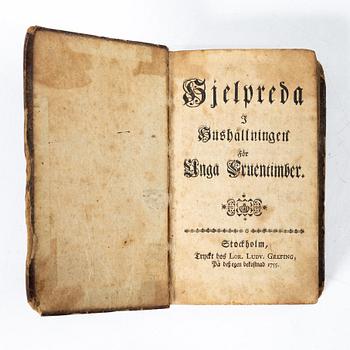 Hjelpreda
I
Hushållningen
För
Unga Fruentimber.
Stockholm,
Tryckt hos LOR. LUDV. GREFING,
På deß egen bekostnad 1755.